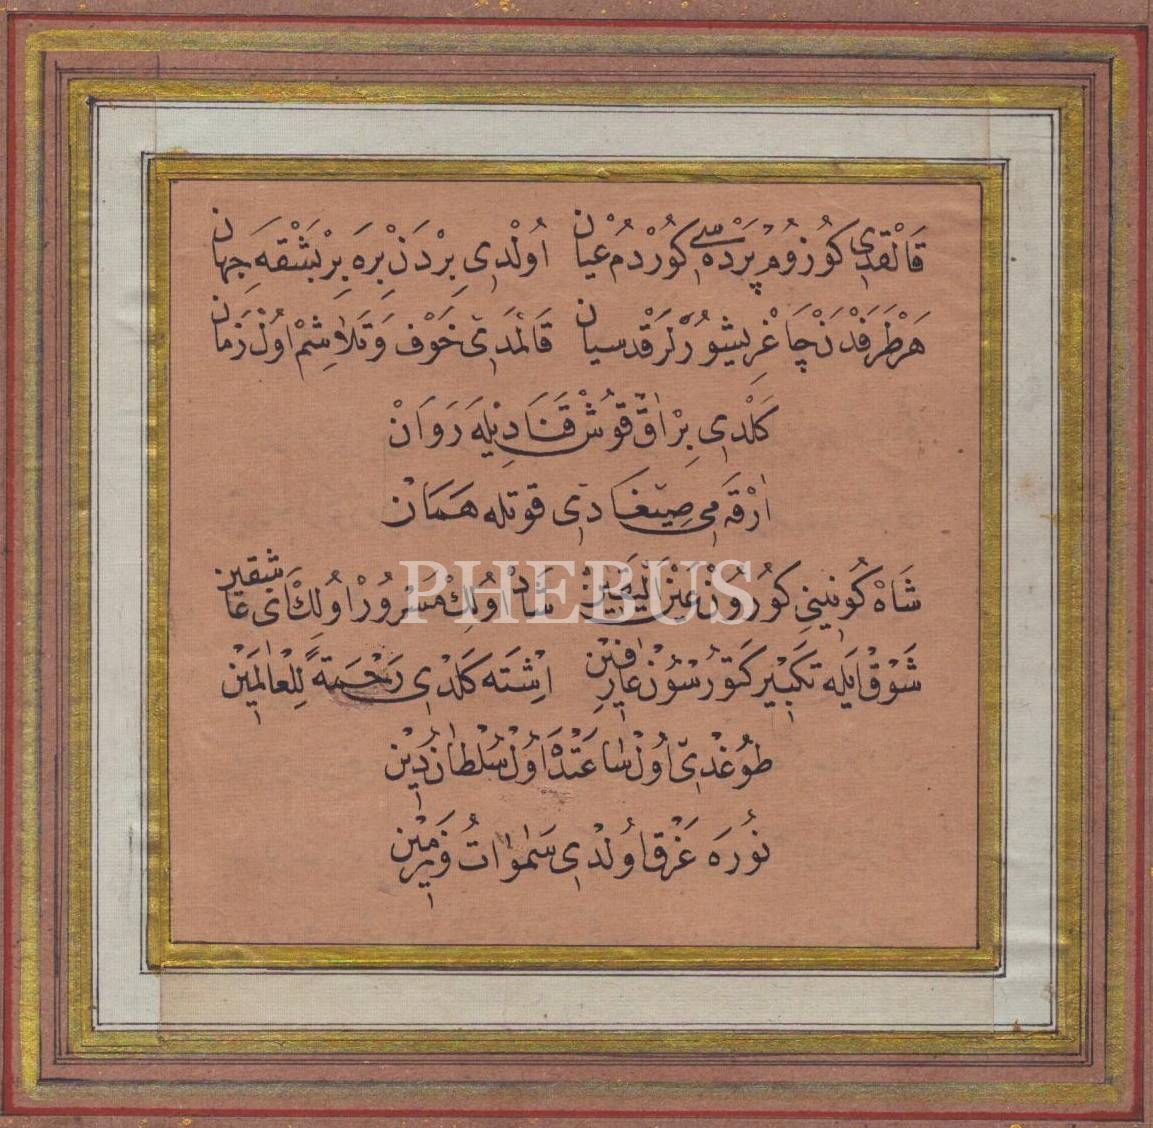 قَالْقَدِي كُوزُومْ پَرْدَه سِي كُورْدُمْ عَيَانْ اُولْدِي بِرْدَنْ بِرَه بِرْ بَشْقَه جِهَانْ
هَرْ طَرَفْدَنْ چَاغِرِيشُورْلَرْ قُدْسِيَانْ قَالْمَدِي خَوْف وَ تَلَاشِمْ اُولْ زَمَانْ
كَلْدِي بِرْ آقْ قُوشْ قَنَادِيلَه رَوَانْ
اَرْقَه مِي صِيغَادِي قُوتِلَه هَمَانْ
شَاهْ كَوْنَيْنِي كُورُونْ عَيْنَ الْيَقِينْ شَادْ اُولُكْ مَسْرُورْ اُولُكْ اَيْ عَاشِقِينْ
شَوْق اِيلَه تَكْبِيرْ كَتُورْسُونْ عَارِفِينْ اِشْتَه كَلْدِي رَحْمَةً لِلْعَالَمِينْ
طُوغْدِي اُولْ سَاعَتْدَه اُولْ سُلْطَانِ دِينْ
نُورَه غَرْق اُولْدِي سَمٰوَاتُ وَ زَمِينْ
PHEBUS